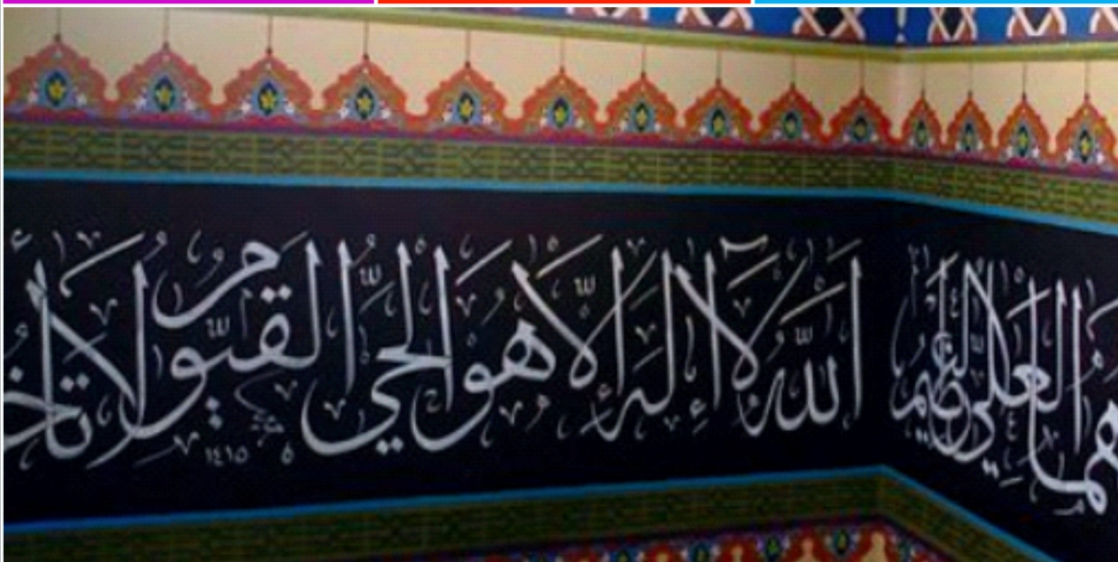 هُمَا الْعَلِيُّ الْعَظِيمُ
اَللّٰهُ لَآ إِلٰهَ إِلَّا هُوَ الْحَيُّ الْقَيُّومُ لَا تَأْخُ
١٤١٥